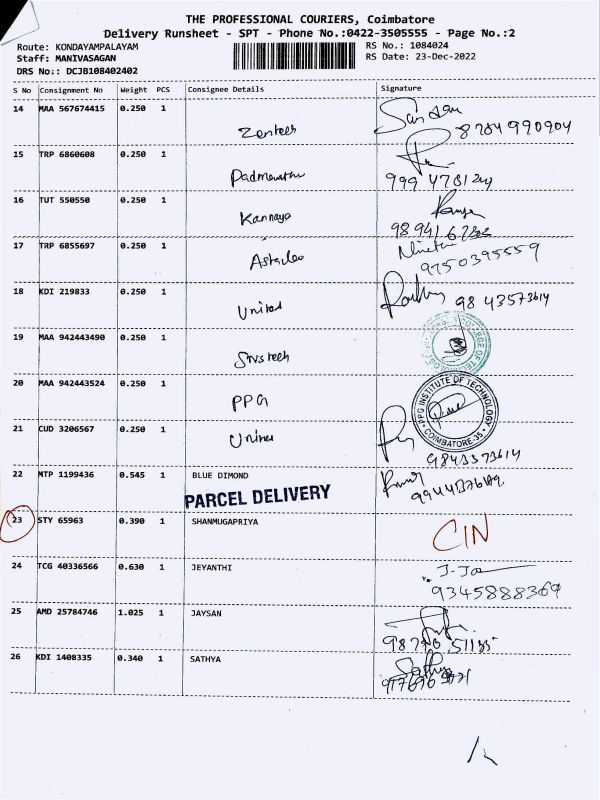 THE PROFESSIONAL COURIERS, Coimbatore
Delivery Runsheet - SPT - Phone No.:0422-3505555 - Page No.:2
Route: KONDAYAMPALAYAM
RS No.: 1084024
Staff: MANIVASAGAN
RS Date: 23-Dec-2022
DRS No:: DCJB108402402
S No Consignment No Weight PCS Consignee Details Signature
14 MAA 567674415 0.250 1 Zentech
8784990904
15 TRP 6860608 0.250 1
16 TUT 550550 0.250 1 Kannaya
17 TRP 6855697 0.250 1
9750395559
18 KDI 219833 0.250 1 United 9843573614
19 MAA 942443490 0.250 1
20 MAA 942443524 0.250 1 PPG
PPG INSTITUTE OF TECHNOLOGY
COIMBATORE-35
21 CUD 3206567 0.250 1 United
9843573614
22 MTP 1199436 0.545 1 BLUE DIMOND
PARCEL DELIVERY
23 STY 65963 0.390 1 SHANMUGAPRIYA CIN
24 TCG 40336566 0.630 1 JEYANTHI
9345888369
25 AMD 25784746 1.025 1 JAYSAN
26 KDI 1408335 0.340 1 SATHYA Sathya